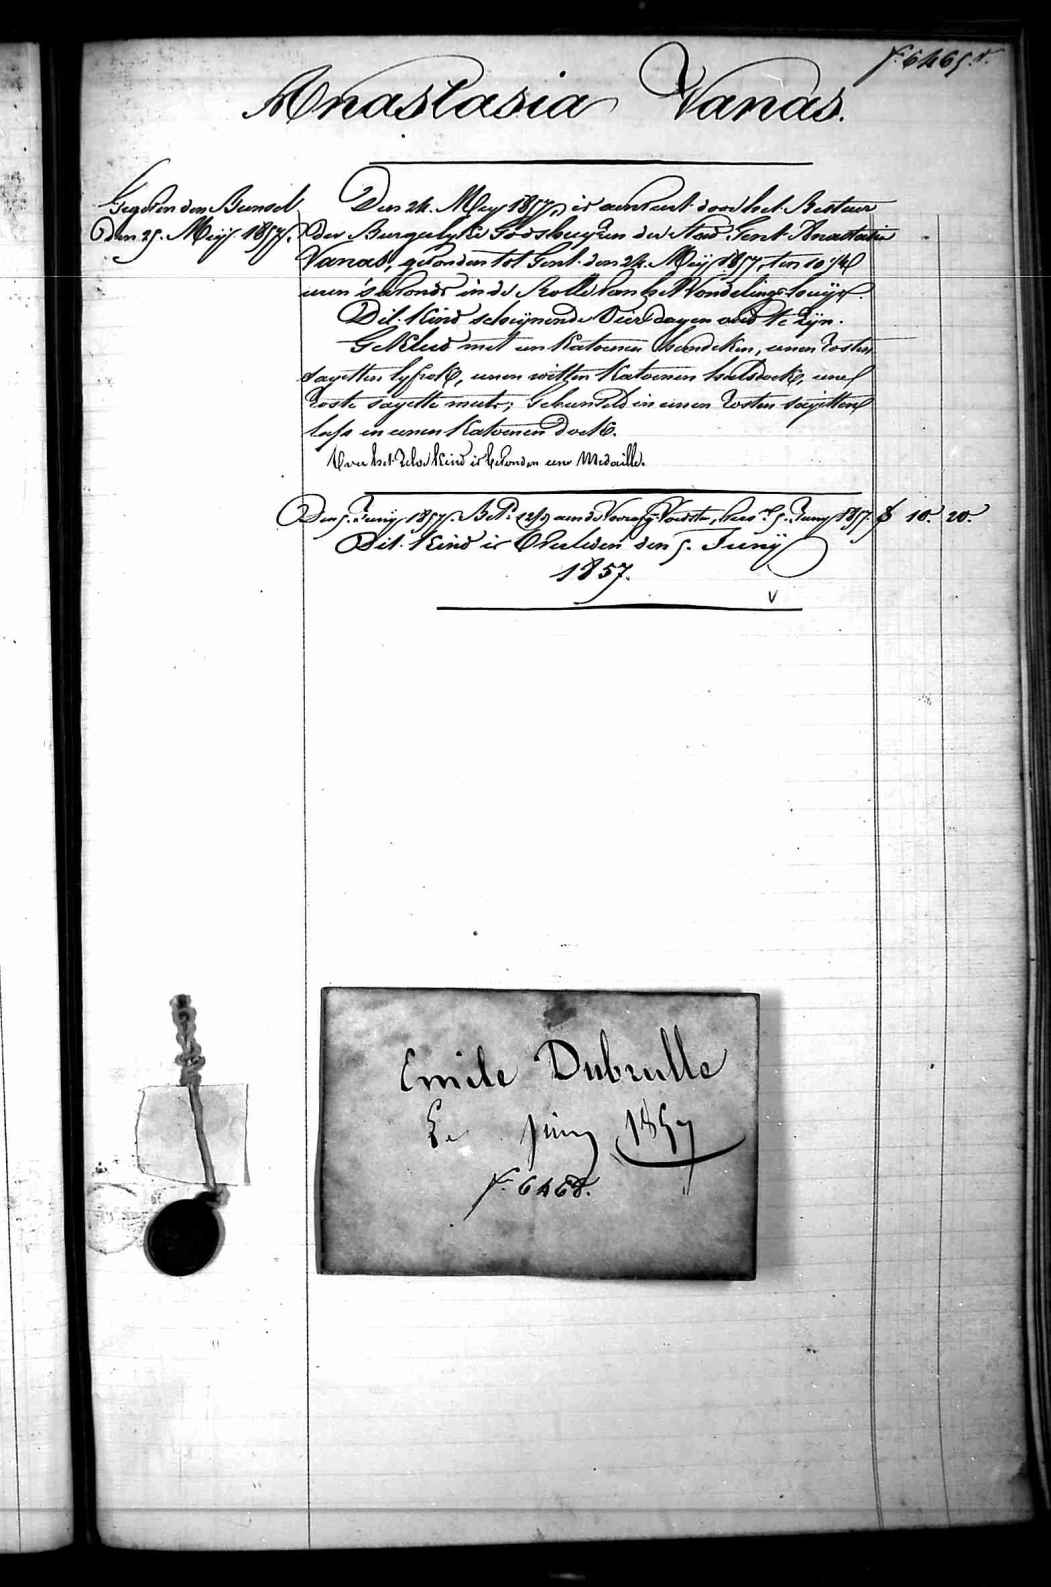 f.° 6465. v.
Anastasia Vanas.
Gegeven den Bunsel
den 25. Meÿ 1857.
Den 24. Mey 1857, is aenveert door het Bestuer
der Burgerlyke Godshuyzen der Stad Gent Anastasia
Vanas, gevonden tot Gent den 24. Meÿ 1857, ten 10 1/4
uren 's avonds in de Rolle van het Vondelings-huÿs.
Dit Kind schÿnende Vier dagen oud te zÿn.
Gekleed met een Katoenen hemdeken, eenen rosten
sayetten lyfrok, eenen witten Katoenen halsdoek, eene
roste sayette muts; gebunseld in eenen rosten sayetten
laps en eenen Katoenen doek.
Over het zelve Kind is bevonden eene Medaille.
Den 5. Junÿ 1857. Bet. aen de Voorzg. Voedster, 5. Juny 1857. f 10. 20.
Dit Kind is Overleden den 5. Junÿ
1857.
v
Emile Dubrulle
1857
f.° 6468.